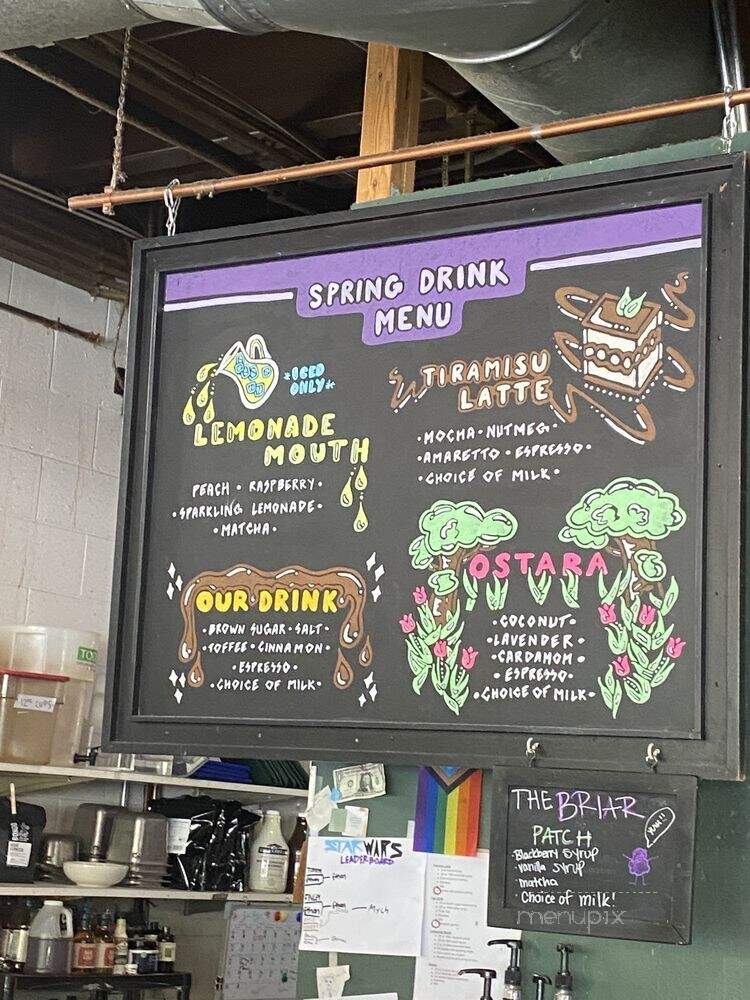 SPRING DRINK
MENU
*ICED
ONLY*
LEMONADE
MOUTH
PEACH • RASPBERRY •
• SPARKLING LEMONADE •
• MATCHA •
TIRAMISU
LATTE
• MOCHA • NUTMEG •
• AMARETTO • ESPRESSO •
• CHOICE OF MILK •
OUR DRINK
• BROWN SUGAR • SALT •
• TOFFEE • CINNAMON •
• ESPRESSO •
• CHOICE OF MILK •
OSTARA
• COCONUT •
• LAVENDER •
• CARDAMOM •
• ESPRESSO •
• CHOICE OF MILK •
THE BRIAR
PATCH
YUM!!
• Blackberry syrup
• vanilla syrup
• matcha
• Choice of milk!
menupix
STAR WARS
LEADERBOARD